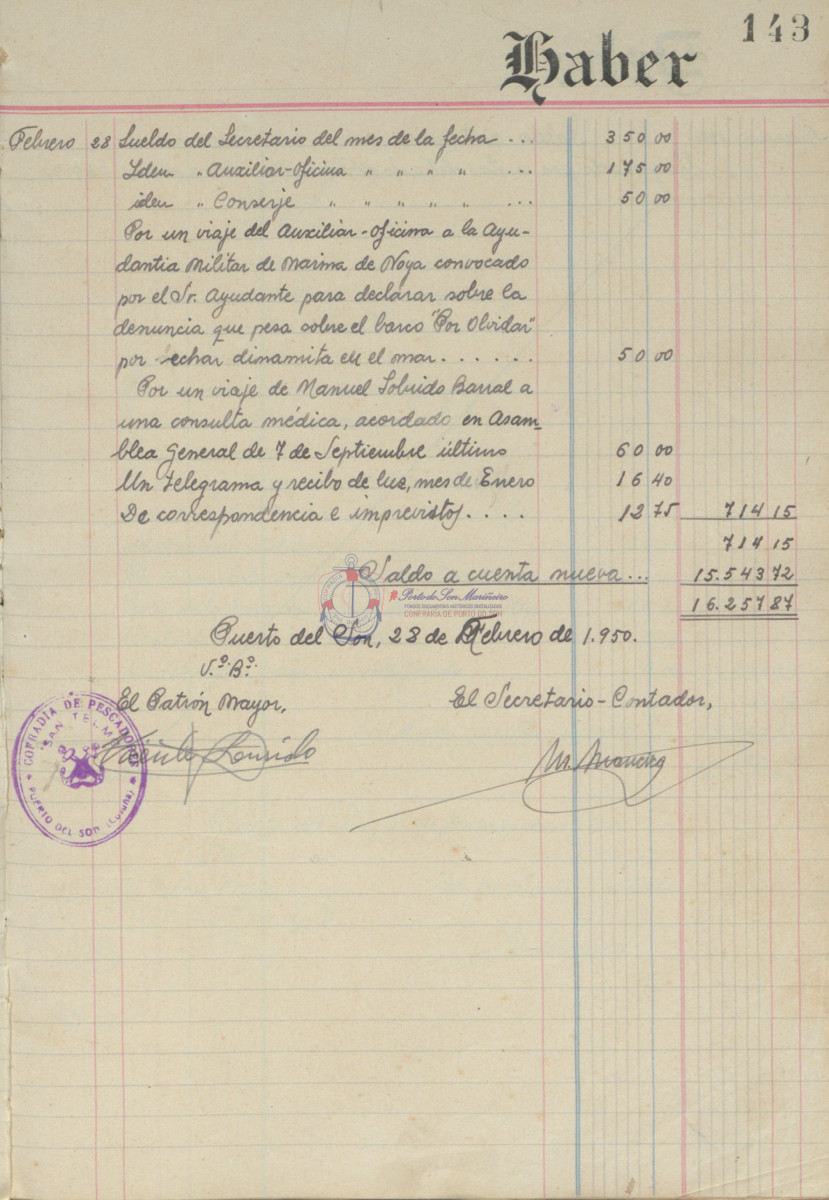 143
Haber
Febrero 28 Sueldo del Secretario del mes de la fecha ... 350 00
Iden " Auxiliar-oficina " " " " ... 175 00
iden " Conserje " " " " " ... 50 00
Por un viaje del Auxiliar-oficina a la Ayu-
dantia Militar de Marina de Noya convocado
por el Sr. Ayudante para declarar sobre la
denuncia que pesa sobre el barco "Por Olvidar"
por echar dinamita en el mar...... 50 00
Por un viaje de Manuel Sobrido Barral a
una consulta médica, acordado en Asam-
blea General de 7 de Septiembre último 60 00
Un telegrama y recibo de luz, mes de Enero 16 40
De correspondencia e imprevistos.... 12 75 714 15
714 15
Saldo a cuenta nueva... 15.543 72
16.257 87
Porto do Son Mariñeiro
FONDOS DOCUMENTAIS HISTÓRICOS DIXITALIZADOS
CONFRARÍA DE PORTO DO SON
Puerto del Son, 28 de Febrero de 1.950.
V.º B.º
El Patrón Mayor, El Secretario-Contador,
COFRADIA DE PESCADORES
SAN TELMO
PUERTO DEL SON (Coruña)